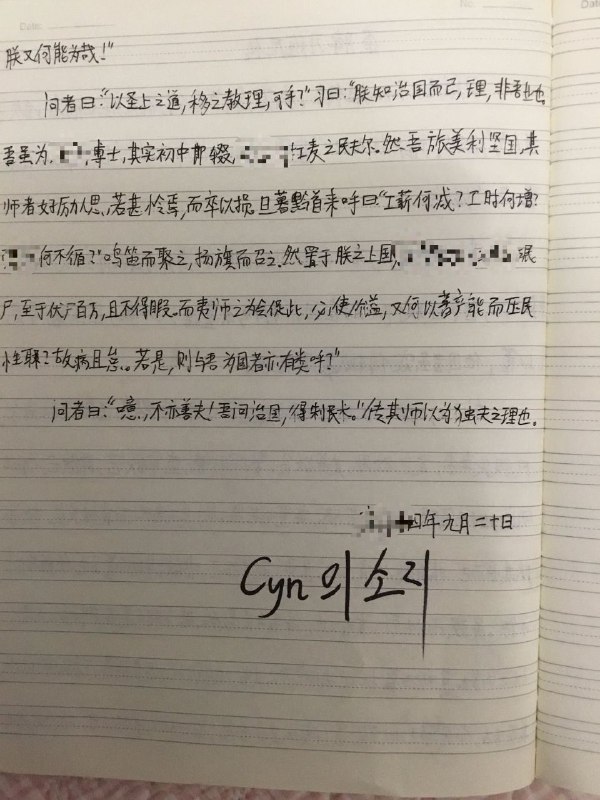 Date:
No.
朕又何能为哉！"
问者曰："以圣上之道，移之教理，可乎？"习曰："朕知治国而已，理，非吾也
吾虽为 博士，其实初中即辍， 红麦之民夫尔。然吾旅美利坚国，其
师者好历人思，若甚怜焉，而卒以损。旦暮黔首来呼曰"工薪何减？工时何增？
何不循？"鸣笛而聚之，扬旗而召之。然置于朕之上国， 珉
尸，至于伏尸百万，且不得暇。而夷师之为会促此，必使 益，又何以蓄产能而压民
性耶？故病且怠。若是，则与吾为国者亦有类乎？"
问者曰："噫，不亦善夫！吾问治国，得制民术。"传其师以为独夫之理也。
四年九月二十日
Cyn의 소리